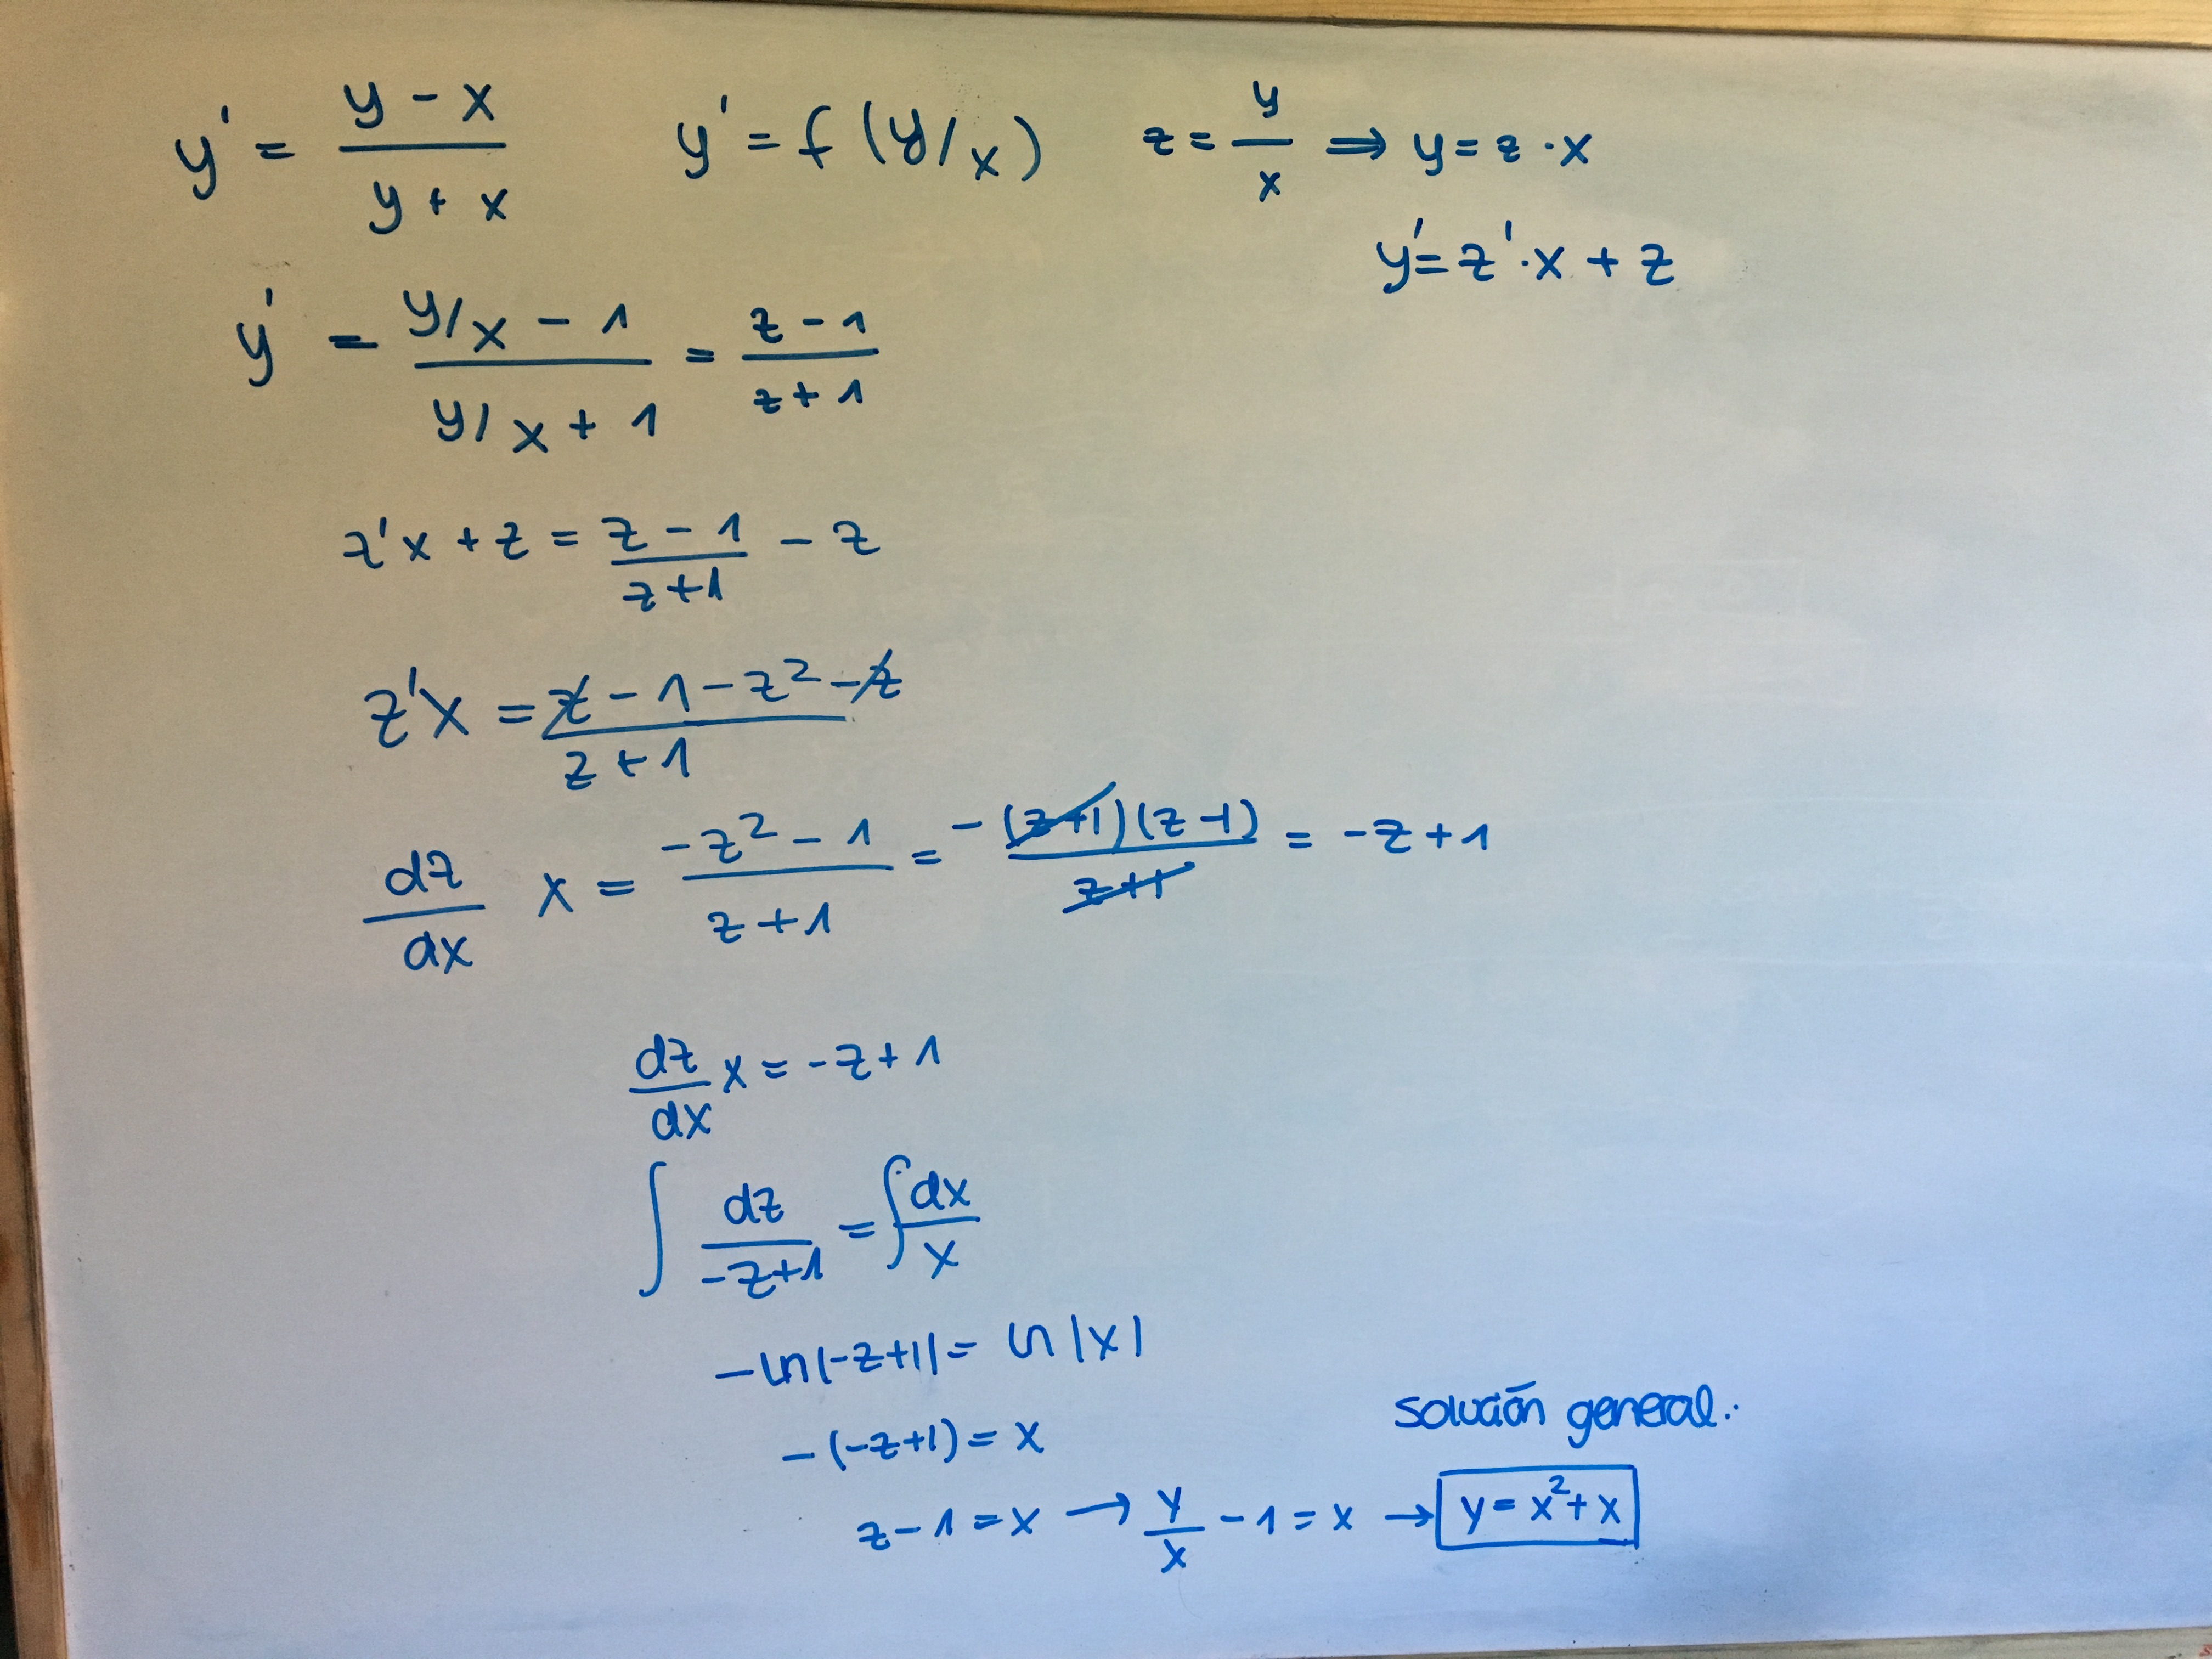 y' = (y - x)/(y + x)    y' = f(y/x)    z = y/x ⇒ y = z · x
y' = z' · x + z
y' = (y/x - 1)/(y/x + 1) = (z - 1)/(z + 1)
z'x + z = (z - 1)/(z + 1) - z
z'x = (z - 1 - z² - z)/(z + 1)
dz/dx x = (-z² - 1)/(z + 1) = -(z+1)(z-1)/(z+1) = -z + 1
dz/dx x = -z + 1
∫ dz/(-z+1) = ∫ dx/x
-ln|-z+1| = ln|x|
-(-z+1) = x
solución general:
z - 1 = x → y/x - 1 = x → y = x² + x